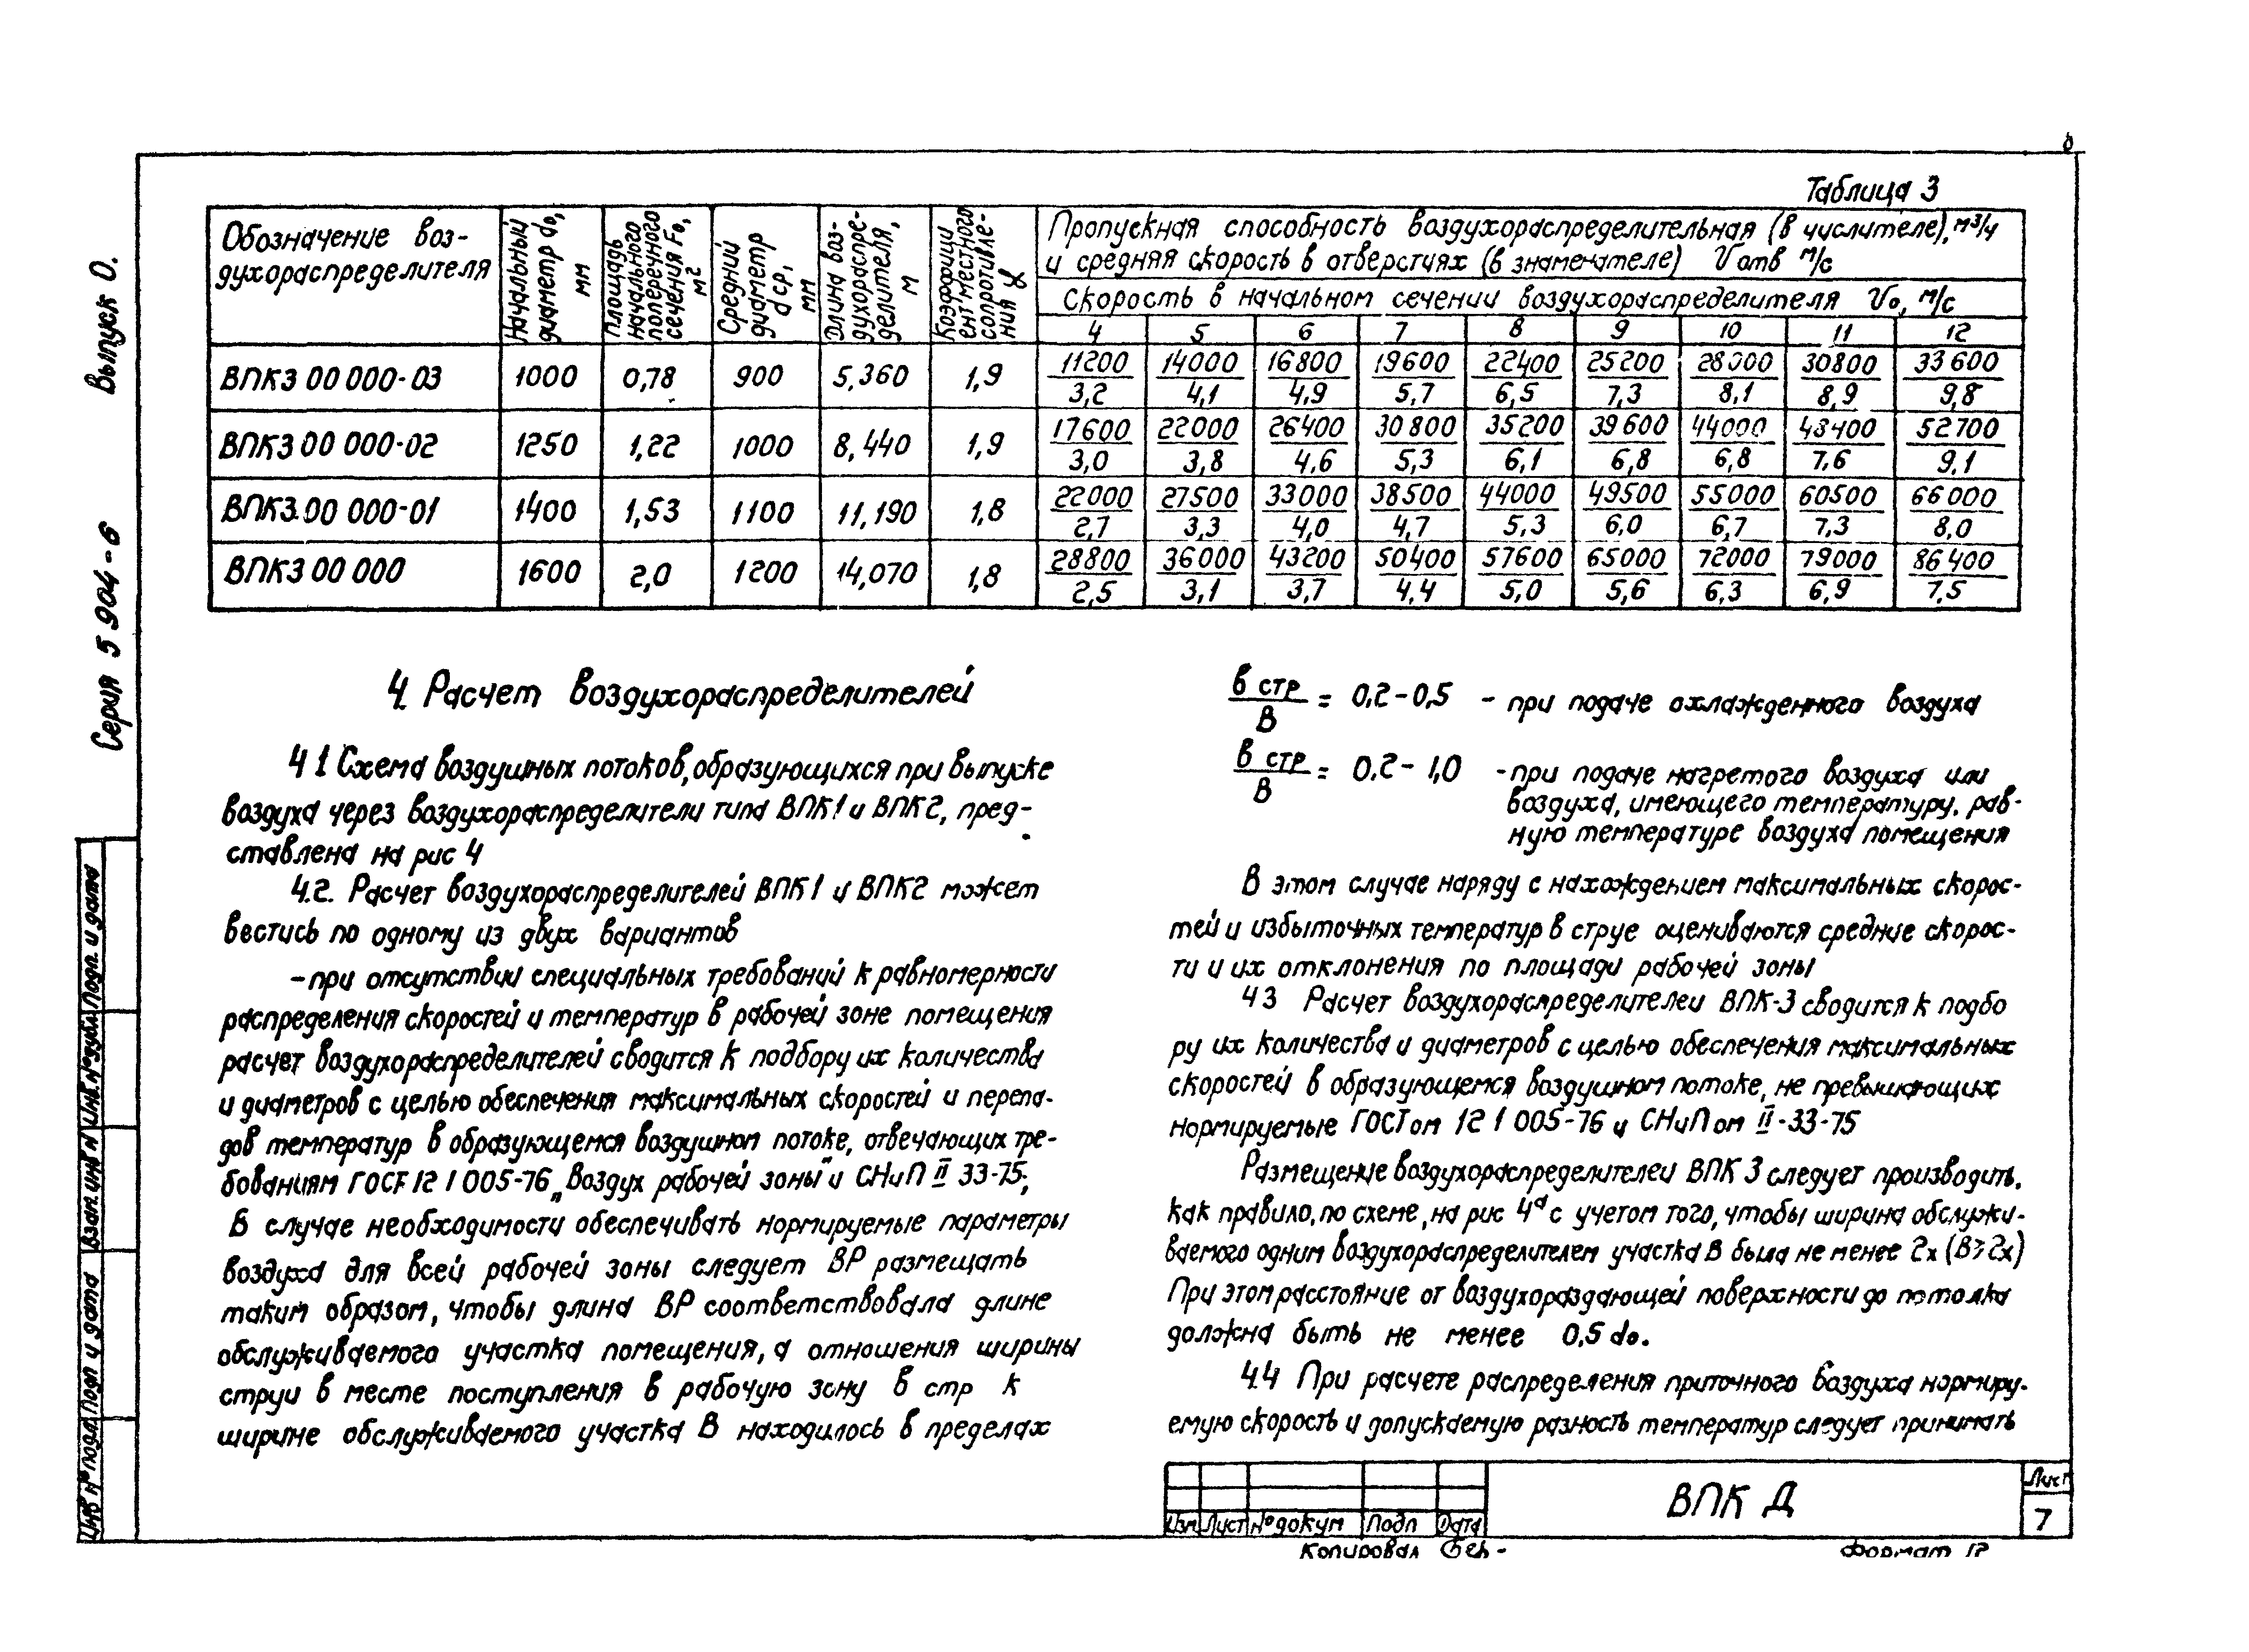 Таблица 3
Обозначение воз-
духораспределителя
Начальный
диаметр d₀,
мм
Площадь
начального
поперечного
сечения F₀,
м²
Средний
диаметр
d ср,
мм
Длина воз-
духораспре-
делителя,
м
Коэффици
ент местного
сопротивле-
ния
Пропускная способность воздухораспределительная (в числителе), м³/ч
и средняя скорость в отверстиях (в знаменателе) Vотв м/с
Скорость в начальном сечении воздухораспределителя V₀, м/с
4 5 6 7 8 9 10 11 12
ВПК3 00 000-03 1000 0,78 900 5,360 1,9 11200/3,2 14000/4,1 16800/4,9 19600/5,7 22400/6,5 25200/7,3 28000/8,1 30800/8,9 33600/9,8
ВПК3 00 000-02 1250 1,22 1000 8,440 1,9 17600/3,0 22000/3,8 26400/4,6 30800/5,3 35200/6,1 39600/6,8 44000/6,8 48400/7,6 52700/9,1
ВПК3.00 000-01 1400 1,53 1100 11,190 1,8 22000/2,7 27500/3,3 33000/4,0 38500/4,7 44000/5,3 49500/6,0 55000/6,7 60500/7,3 66000/8,0
ВПК3 00 000 1600 2,0 1200 14,070 1,8 28800/2,5 36000/3,1 43200/3,7 50400/4,4 57600/5,0 65000/5,6 72000/6,3 79000/6,9 86400/7,5
4. Расчет воздухораспределителей
4 1 Схема воздушных потоков, образующихся при выпуске
воздуха через воздухораспределители типа ВПК1 и ВПК2, пред-
ставлена на рис 4
4.2. Расчет воздухораспределителей ВПК1 и ВПК2 может
вестись по одному из двух вариантов
- при отсутствии специальных требований к равномерности
распределения скоростей и температур в рабочей зоне помещения
расчет воздухораспределителей сводится к подбору их количества
и диаметров с целью обеспечения максимальных скоростей и перепа-
дов температур в образующемся воздушном потоке, отвечающих тре-
бованиям ГОСТ 12 1 005-76 „Воздух рабочей зоны" и СНиП II 33-75;
В случае необходимости обеспечивать нормируемые параметры
воздуха для всей рабочей зоны следует ВР размещать
таким образом, чтобы длина ВР соответствовала длине
обслуживаемого участка помещения, а отношения ширины
струи в месте поступления в рабочую зону в стр к
ширине обслуживаемого участка В находилось в пределах
в стр/В = 0,2-0,5 - при подаче охлажденного воздуха
в стр/В = 0,2-1,0 - при подаче нагретого воздуха или
воздуха, имеющего температуру, рав-
ную температуре воздуха помещения
В этом случае наряду с нахождением максимальных скорос-
тей и избыточных температур в струе оцениваются средние скорос-
ти и их отклонения по площади рабочей зоны
4 3 Расчет воздухораспределителей ВПК-3 сводится к подбо
ру их количества и диаметров с целью обеспечения максимальных
скоростей в образующемся воздушном потоке, не превышающих
нормируемые ГОСТом 12 1 005-76 и СНиПом II-33-75
Размещение воздухораспределителей ВПК 3 следует производить,
как правило, по схеме, на рис 4ᵃ с учетом того, чтобы ширина обслужи-
ваемого одним воздухораспределителем участка В была не менее 2х (В ≥ 2х)
При этом расстояние от воздухораздающей поверхности до потолка
должна быть не менее 0,5 d₀.
4.4 При расчете распределения приточного воздуха нормиру-
емую скорость и допускаемую разность температур следует принимать
Серия 5 904-6 Выпуск 0.
Инв № подл. Подп и дата Взам. инв № Инв. № дубл. Подп. и дата
Изм Лист № докум Подп Дата
ВПК Д
Лист
7
Копировал
Формат 12